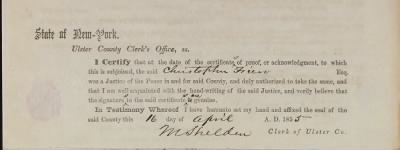 State of New-York.
Ulster County Clerk's Office, ss.
I Certify that at the date of the certificate of proof, or acknowledgment, to which
this is subjoined, the said Christopher Fiero Esq.
was a Justice of the Peace in and for said County, and duly authorized to take the same, and
that I am well acquainted with the hand-writing of the said Justice, and verily believe that
the signature to the said certificate is genuine.
In Testimony Whereof I have hereunto set my hand and affixed the seal of
said County this 16 day of April A. D. 1855
M Shelden Clerk of Ulster Co.